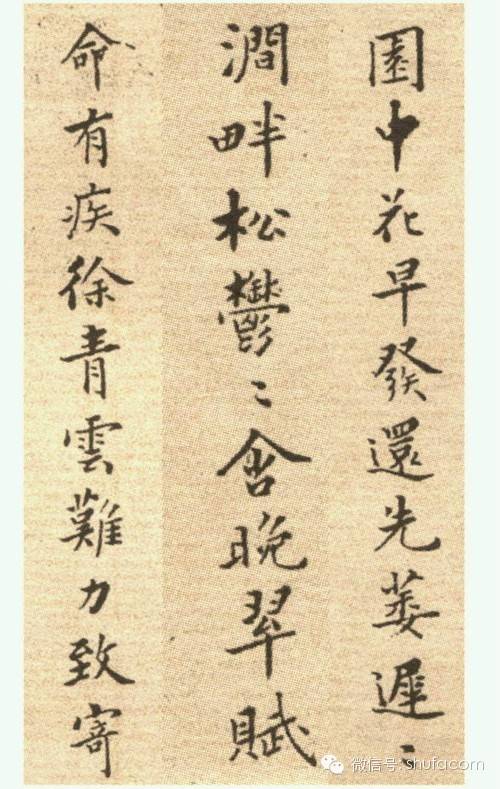 園中花早發還先萎遲〻
澗畔松鬱〻含晚翠賦
命有疾徐青雲難力致寄
微信号: shufacom